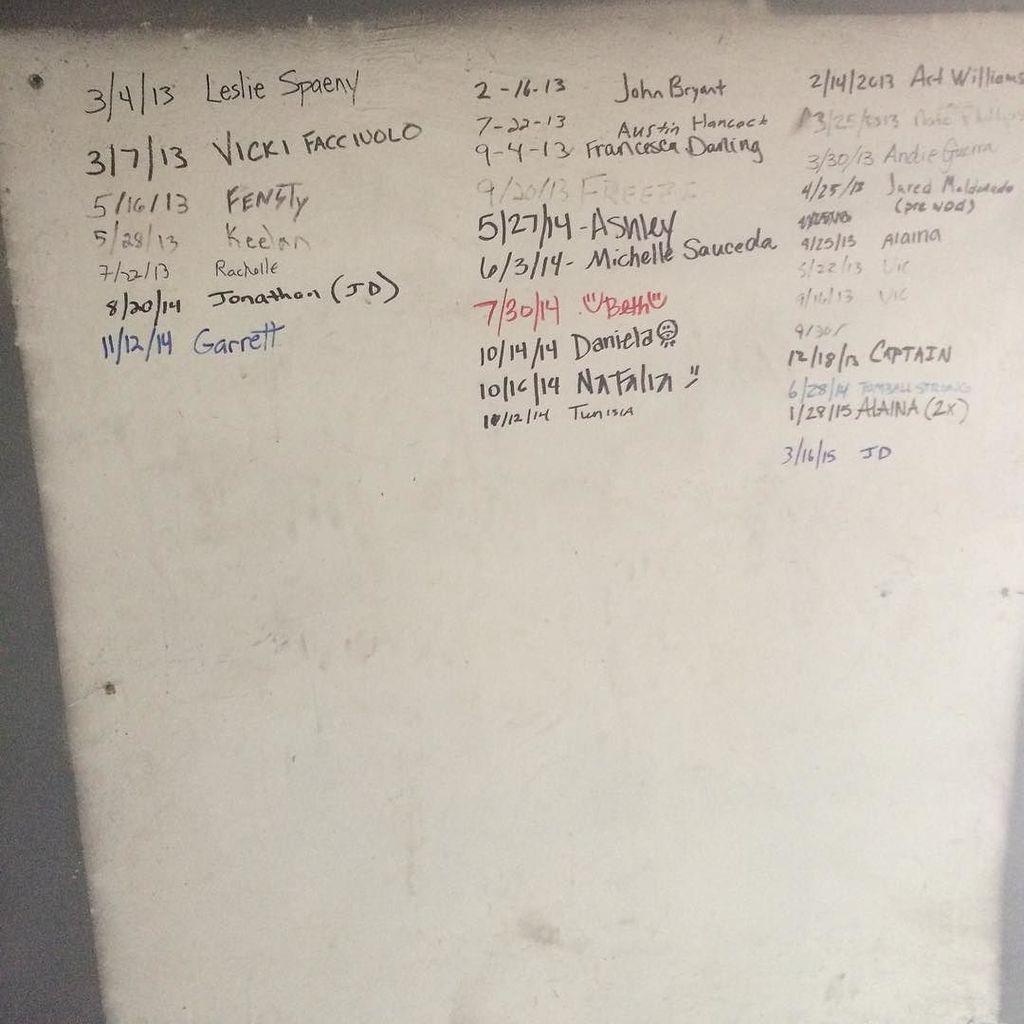 3/4/13 Leslie Spaeny
3/7/13 VICKI FACCIUOLO
5/16/13 FENSTY
5/28/13 Keelan
7/22/13 Rachelle
8/20/14 Jonathan (JD)
11/12/14 Garrett
2-16-13 John Bryant
7-22-13 Austin Hancock
9-4-13 Francesca Darling
9/20/13 FREEZE
5/27/14-Ashley
6/3/14- Michelle Sauceda
7/30/14 Beth
10/14/14 Daniela
10/16/14 NATALIA
10/12/14 TUNISIA
2/14/2013 Art Williams
3/25/2013
3/30/13 Andie Guerra
4/25/13 Jared Maldonado
(pre wod)
4/25/13 Alaina
5/22/13 Vic
9/16/13 Vic
9/30/
12/18/13 CAPTAIN
6/28/14 TOMBALL STRONG
1/28/15 ALAINA (2x)
3/16/15 JD